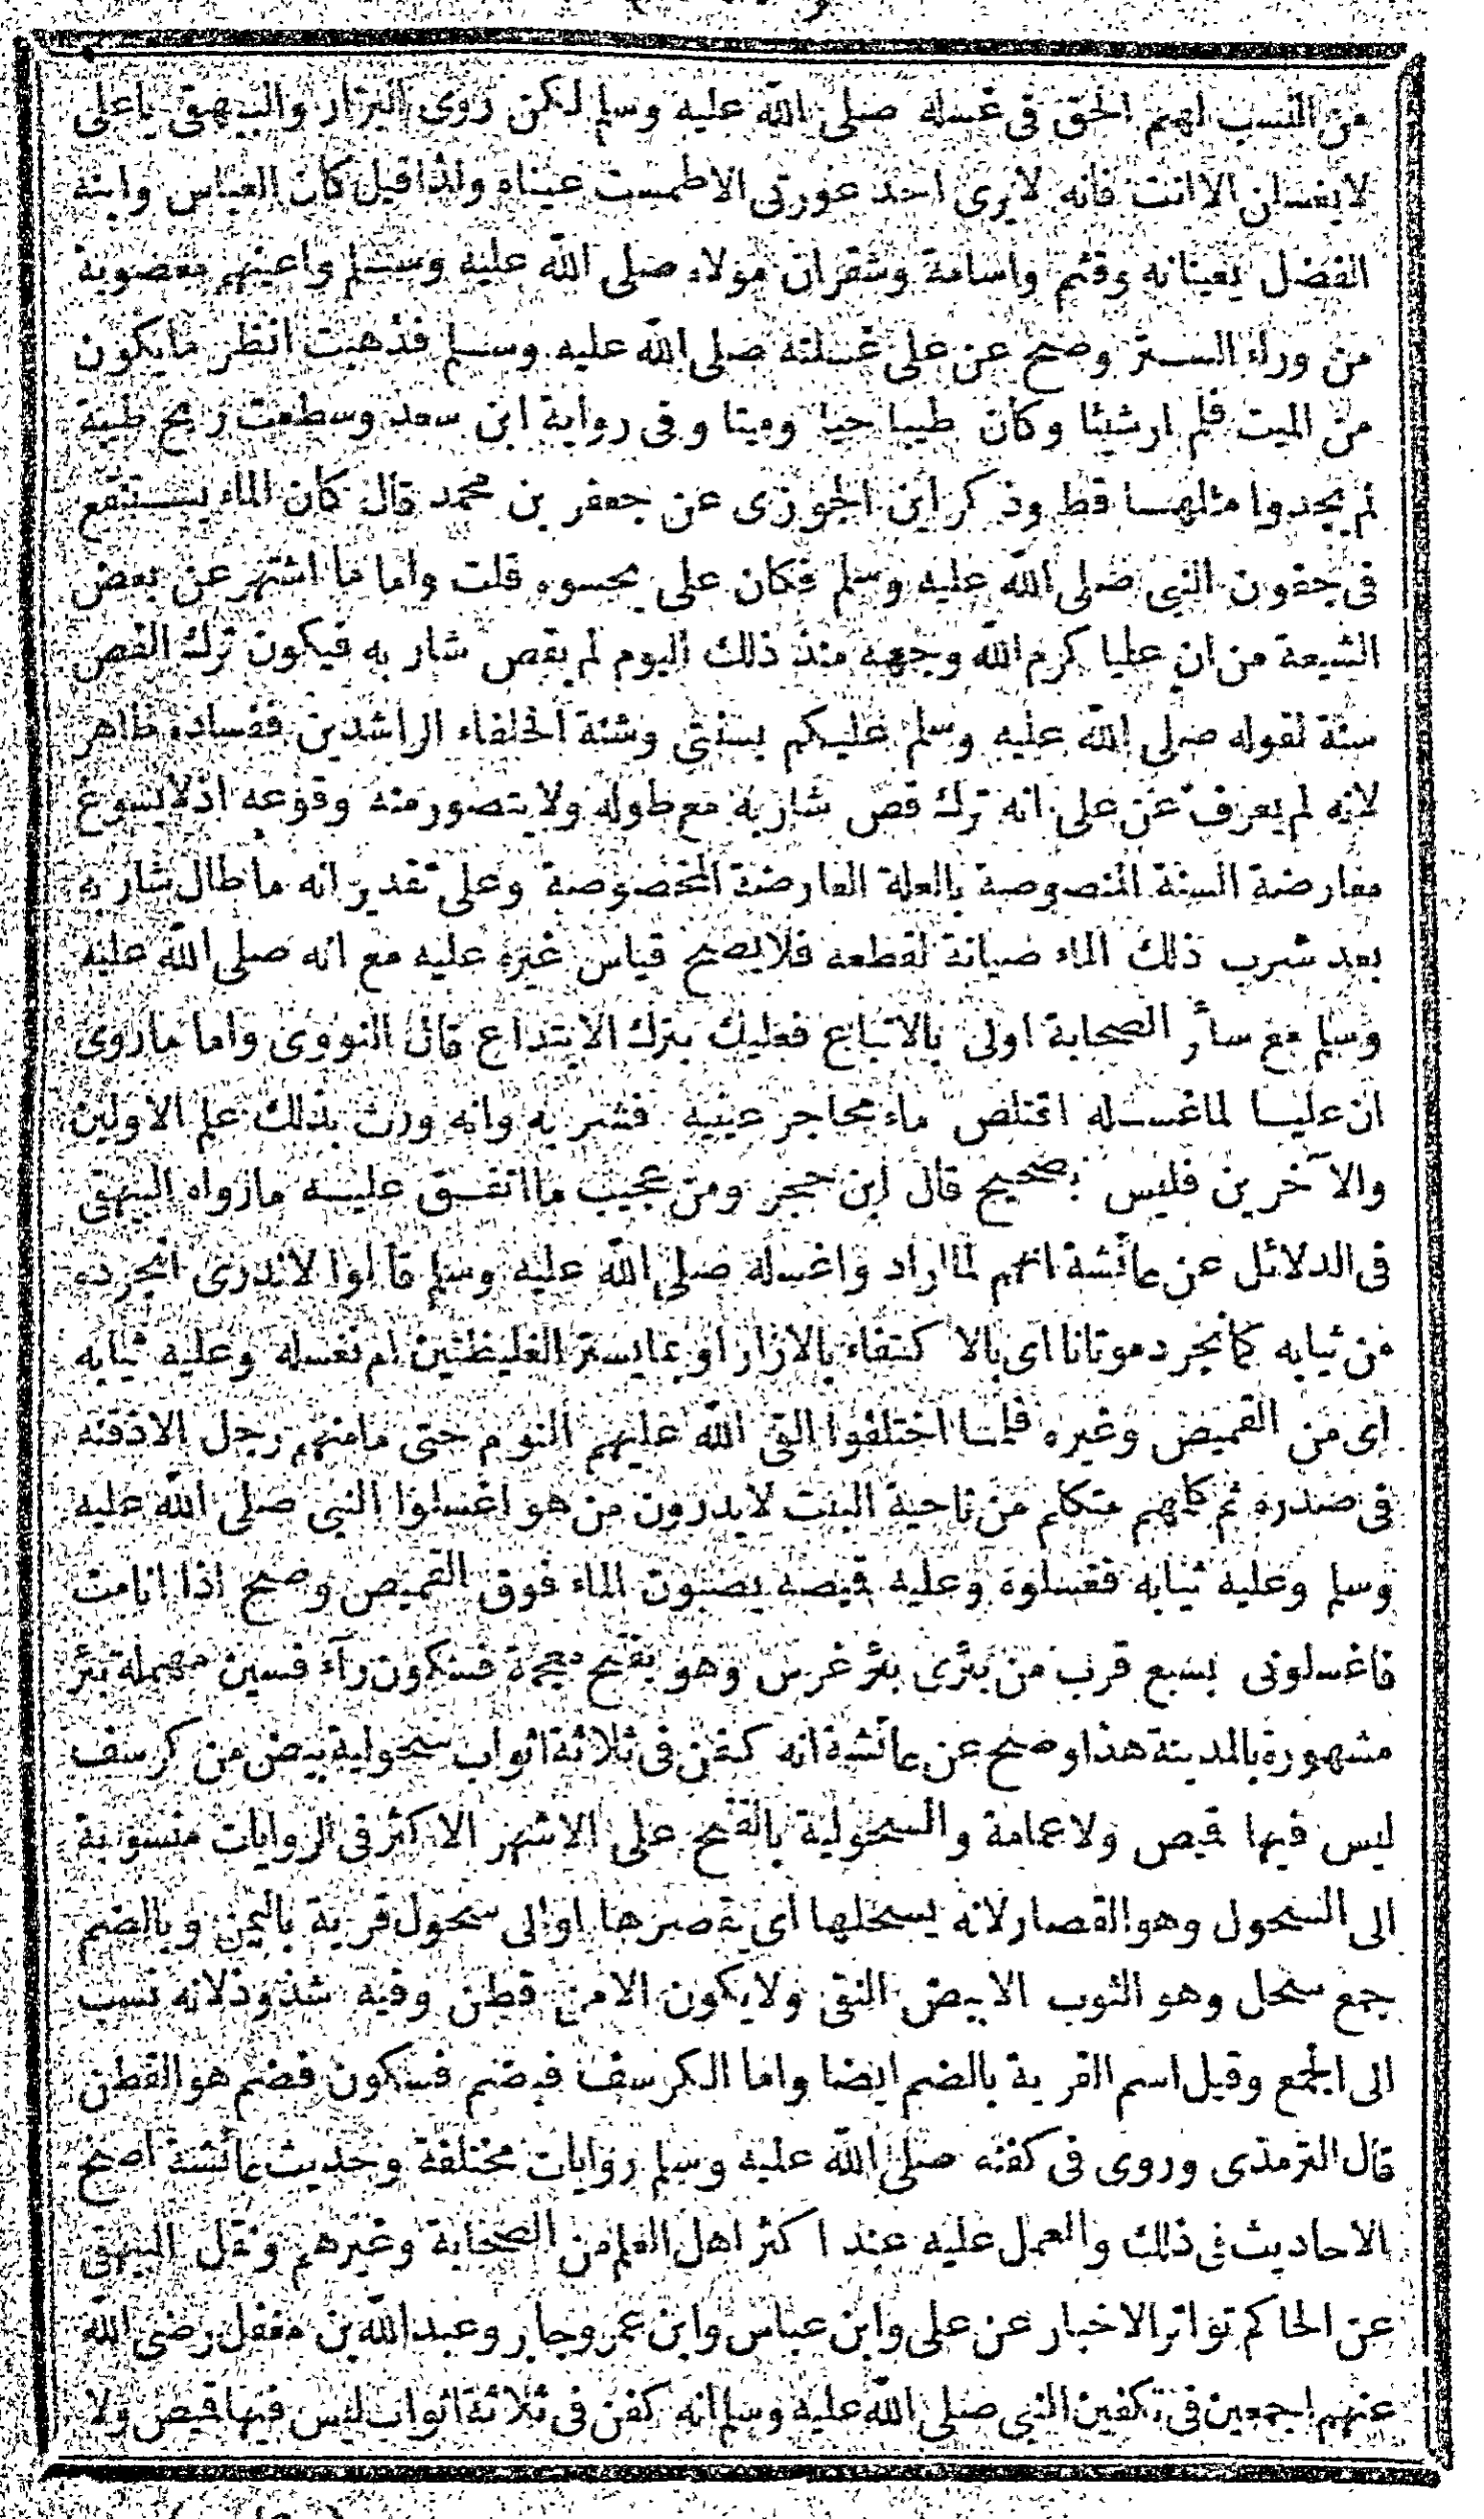 من النسب لهم الحق فى غسله صلى الله عليه وسلم لكن روى البزار والبيهقى ياعلى
لايغسلنى الاانت فانه لايرى احد عورتى الاطمست عيناه ولذاقيل كان العباس وابنه
الفضل يعينانه وقثم واسامة وشقران مولاه صلى الله عليه وسلم واعينهم معصوبة
من وراء الستر وصح عن على غسلته صلى الله عليه وسلم فذهبت انظر مايكون
من الميت فلم ارشيئا وكان طيبا حيا وميتا وفى رواية ابن سعد وسطعت ريح طيبة
لم يجدوا مثلها قط وذكر ابن الجوزى عن جعفر بن محمد قال كان الماء يستنقع
فى جفون النبى صلى الله عليه وسلم فكان على يحسوه قلت واما ما اشتهر عن بعض
الشيعة من ان عليا كرم الله وجهه منذ ذلك اليوم لم يقص شاربه فيكون ترك القص
سنة لقوله صلى الله عليه وسلم عليكم بسنتى وسنة الخلفاء الراشدين ففساده ظاهر
لانه لم يعرف عن على انه ترك قص شاربه مع طوله ولايتصور منه وقوعه اذلايسوغ
معارضة السنة المنصوصة بالعلة العارضة المخصوصة وعلى تقدير انه ماطال شاربه
بعد شرب ذلك الماء صيانة لقطعه فلايصح قياس غيره عليه مع انه صلى الله عليه
وسلم مع سائر الصحابة اولى بالاتباع فعليك بترك الابتداع قال النووى واما ماروى
ان عليا لماغسله اقتلص ماء محاجر عينيه فشربه وانه ورث بذلك علم الاولين
والآخرين فليس بصحيح قال ابن حجر ومن عجيب مااتفق عليه مارواه البيهقى
فى الدلائل عن عائشة انهم لمااراد واغسله صلى الله عليه وسلم قالوا لاندرى انجرده
من ثيابه كمانجرد موتانا اى بالاكتفاء بالازار او بمايستر الغليظتين ام نغسله وعليه ثيابه
اى من القميص وغيره فلما اختلفوا القى الله عليهم النوم حتى مامنهم رجل الاذقنه
فى صدره ثم كلهم متكلم من ناحية البيت لايدرون من هو اغسلوا النبى صلى الله عليه
وسلم وعليه ثيابه فغسلوه وعليه قيصه يصبون الماء فوق القميص وصح اذا انامت
فاغسلونى بسبع قرب من بئرى بئر غرس وهو بفتح معجمة فسكون رآء فسين مهملة بئر
مشهورة بالمدينة هذا وصح عن عائشة انه كفن فى ثلاثة اثواب سحولية بيض من كرسف
ليس فيها قيص ولاعمامة والسحولية بالفتح على الاشهر الاكثر فى الروايات منسوبة
الى السحول وهو القصار لانه يسحلها اى يقصرها اوالى سحول قرية باليمن وبالضم
جمع سحل وهو الثوب الابيض النقى ولايكون الامن قطن وفيه شذوذ لانه نسب
الى الجمع وقيل اسم القرية بالضم ايضا واما الكرسف فبضم فسكون فضم هو القطن
قال الترمذى وروى فى كفنه صلى الله عليه وسلم روايات مختلفة وحديث عائشة اصح
الاحاديث فى ذلك والعمل عليه عند اكثر اهل العلم من الصحابة وغيرهم ونقل البيهقى
عن الحاكم تواتر الاخبار عن على وابن عباس وابن عمر وجابر وعبدالله بن مغفل رضى الله
عنهم اجمعين فى تكفين النبى صلى الله عليه وسلم انه كفن فى ثلاثة اثواب ليس فيها قيص ولا